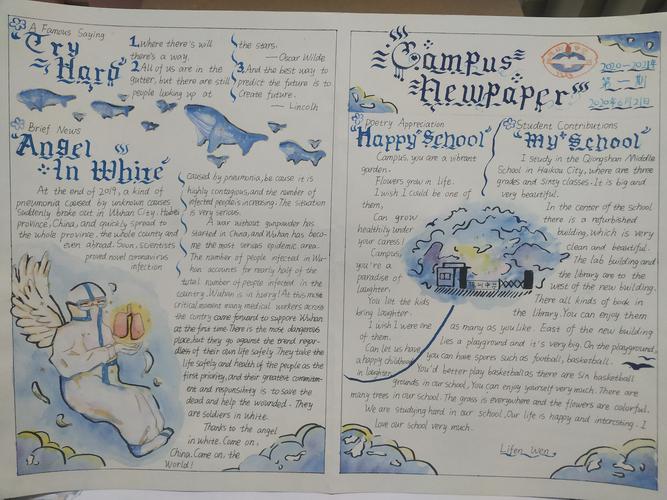 A Famous Saying
"Try
Hard"
1. Where there's will
there's a way.
2. All of us are in the
gutter, but there are still
people looking up at
the stars.
— Oscar Wilde
3. And the best way to
predict the future is to
Create future.
— Lincoln
Brief News
"Angel
In White"
At the end of 2019, a kind of
pneumonia caused by unknown causes
suddenly broke out in Wuhan City, Hubei
province, China, and quickly spread to
the whole province, the whole country and
even abroad. Soon, scientists
proved novel coronavirus
infection
caused by pneumonia, be cause it is
highly contagious, and the number of
infected people is increasing. The situation
is very serious.
A war without gunpowder has
started in China, and Wuhan has beco-
me the most serious epidemic area.
The number of people infected in Wu-
han accounts for nearly half of the
total number of people infected in the
country. Wuhan is in hurry! At this most
critical moment many medical workers across
the contry came forward to support Wuhan
at the first time. There is the most dangerous
place, but they go against the trend regar-
dless of their own life safely. They take the
life safely and health of the people as the
first priority, and their greatest commitm-
ent and responsihity is to save the
dead and help the wounded. They
are soldiers in white.
Thanks to the angel
in white. Come on,
China. Come on, the
World!
"Campus
Newpaper"
2020-2021年
第一期
2020年6月21日
Poetry Appreciation
"Happy School"
Campus, you are a vibrant
garden.
Flowers grow in life.
I wish I could be one of
them,
Can grow
healthily under
your caress!
Campus,
you're a
paradise of
laughter.
You let the kids
bring laughter.
I wish I were one
of them.
Can let us have
a happy childhood
in laughter.
Student Contributions
"My School"
I study in the Qiongshan Middle
School in Haikou City, where are three
grades and sixty classes. It is big and
very beautiful.
In the center of the school
there is a refurbished
building, which is very
clean and beautiful.
The lab building and
the library are to the
west of the new building.
There all kinds of book in
the library. You can enjoy them
as many as you like. East of the new building
lies a playground and it's very big. On the playground,
you can have spores such as football, basketball.
You'd better play basketball as there are six basketball
grounds in our school. You can enjoy yourself very much. There are
many trees in our school. The grass is everywhere and the flowers are colorful.
We are studying hard in our school. Our life is happy and interesting. I
love our school very much.
Lifen Wen